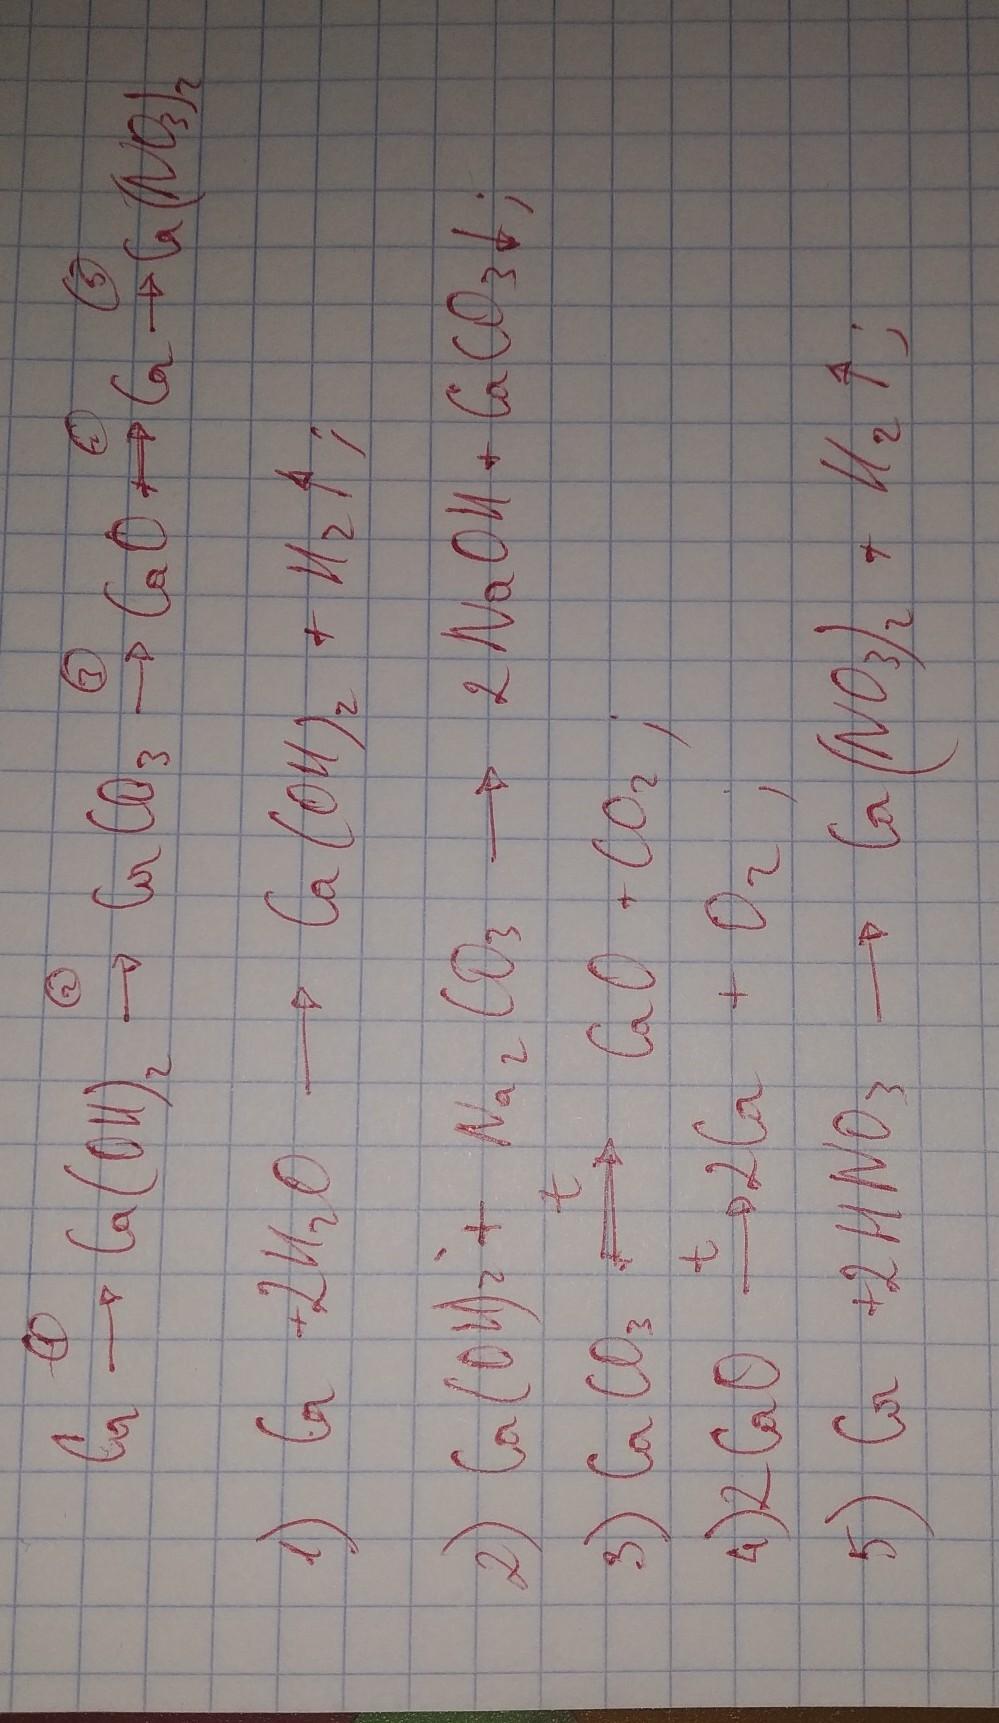 Ca →① Ca(OH)₂ →② CaCO₃ →③ CaO →④ Ca →⑤ Ca(NO₃)₂
1) Ca + 2H₂O → Ca(OH)₂ + H₂↑;
2) Ca(OH)₂ + Na₂CO₃ → 2NaOH + CaCO₃↓;
3) CaCO₃ →ᵗ CaO + CO₂;
4) 2CaO →ᵗ 2Ca + O₂;
5) Ca + 2HNO₃ → Ca(NO₃)₂ + H₂↑;